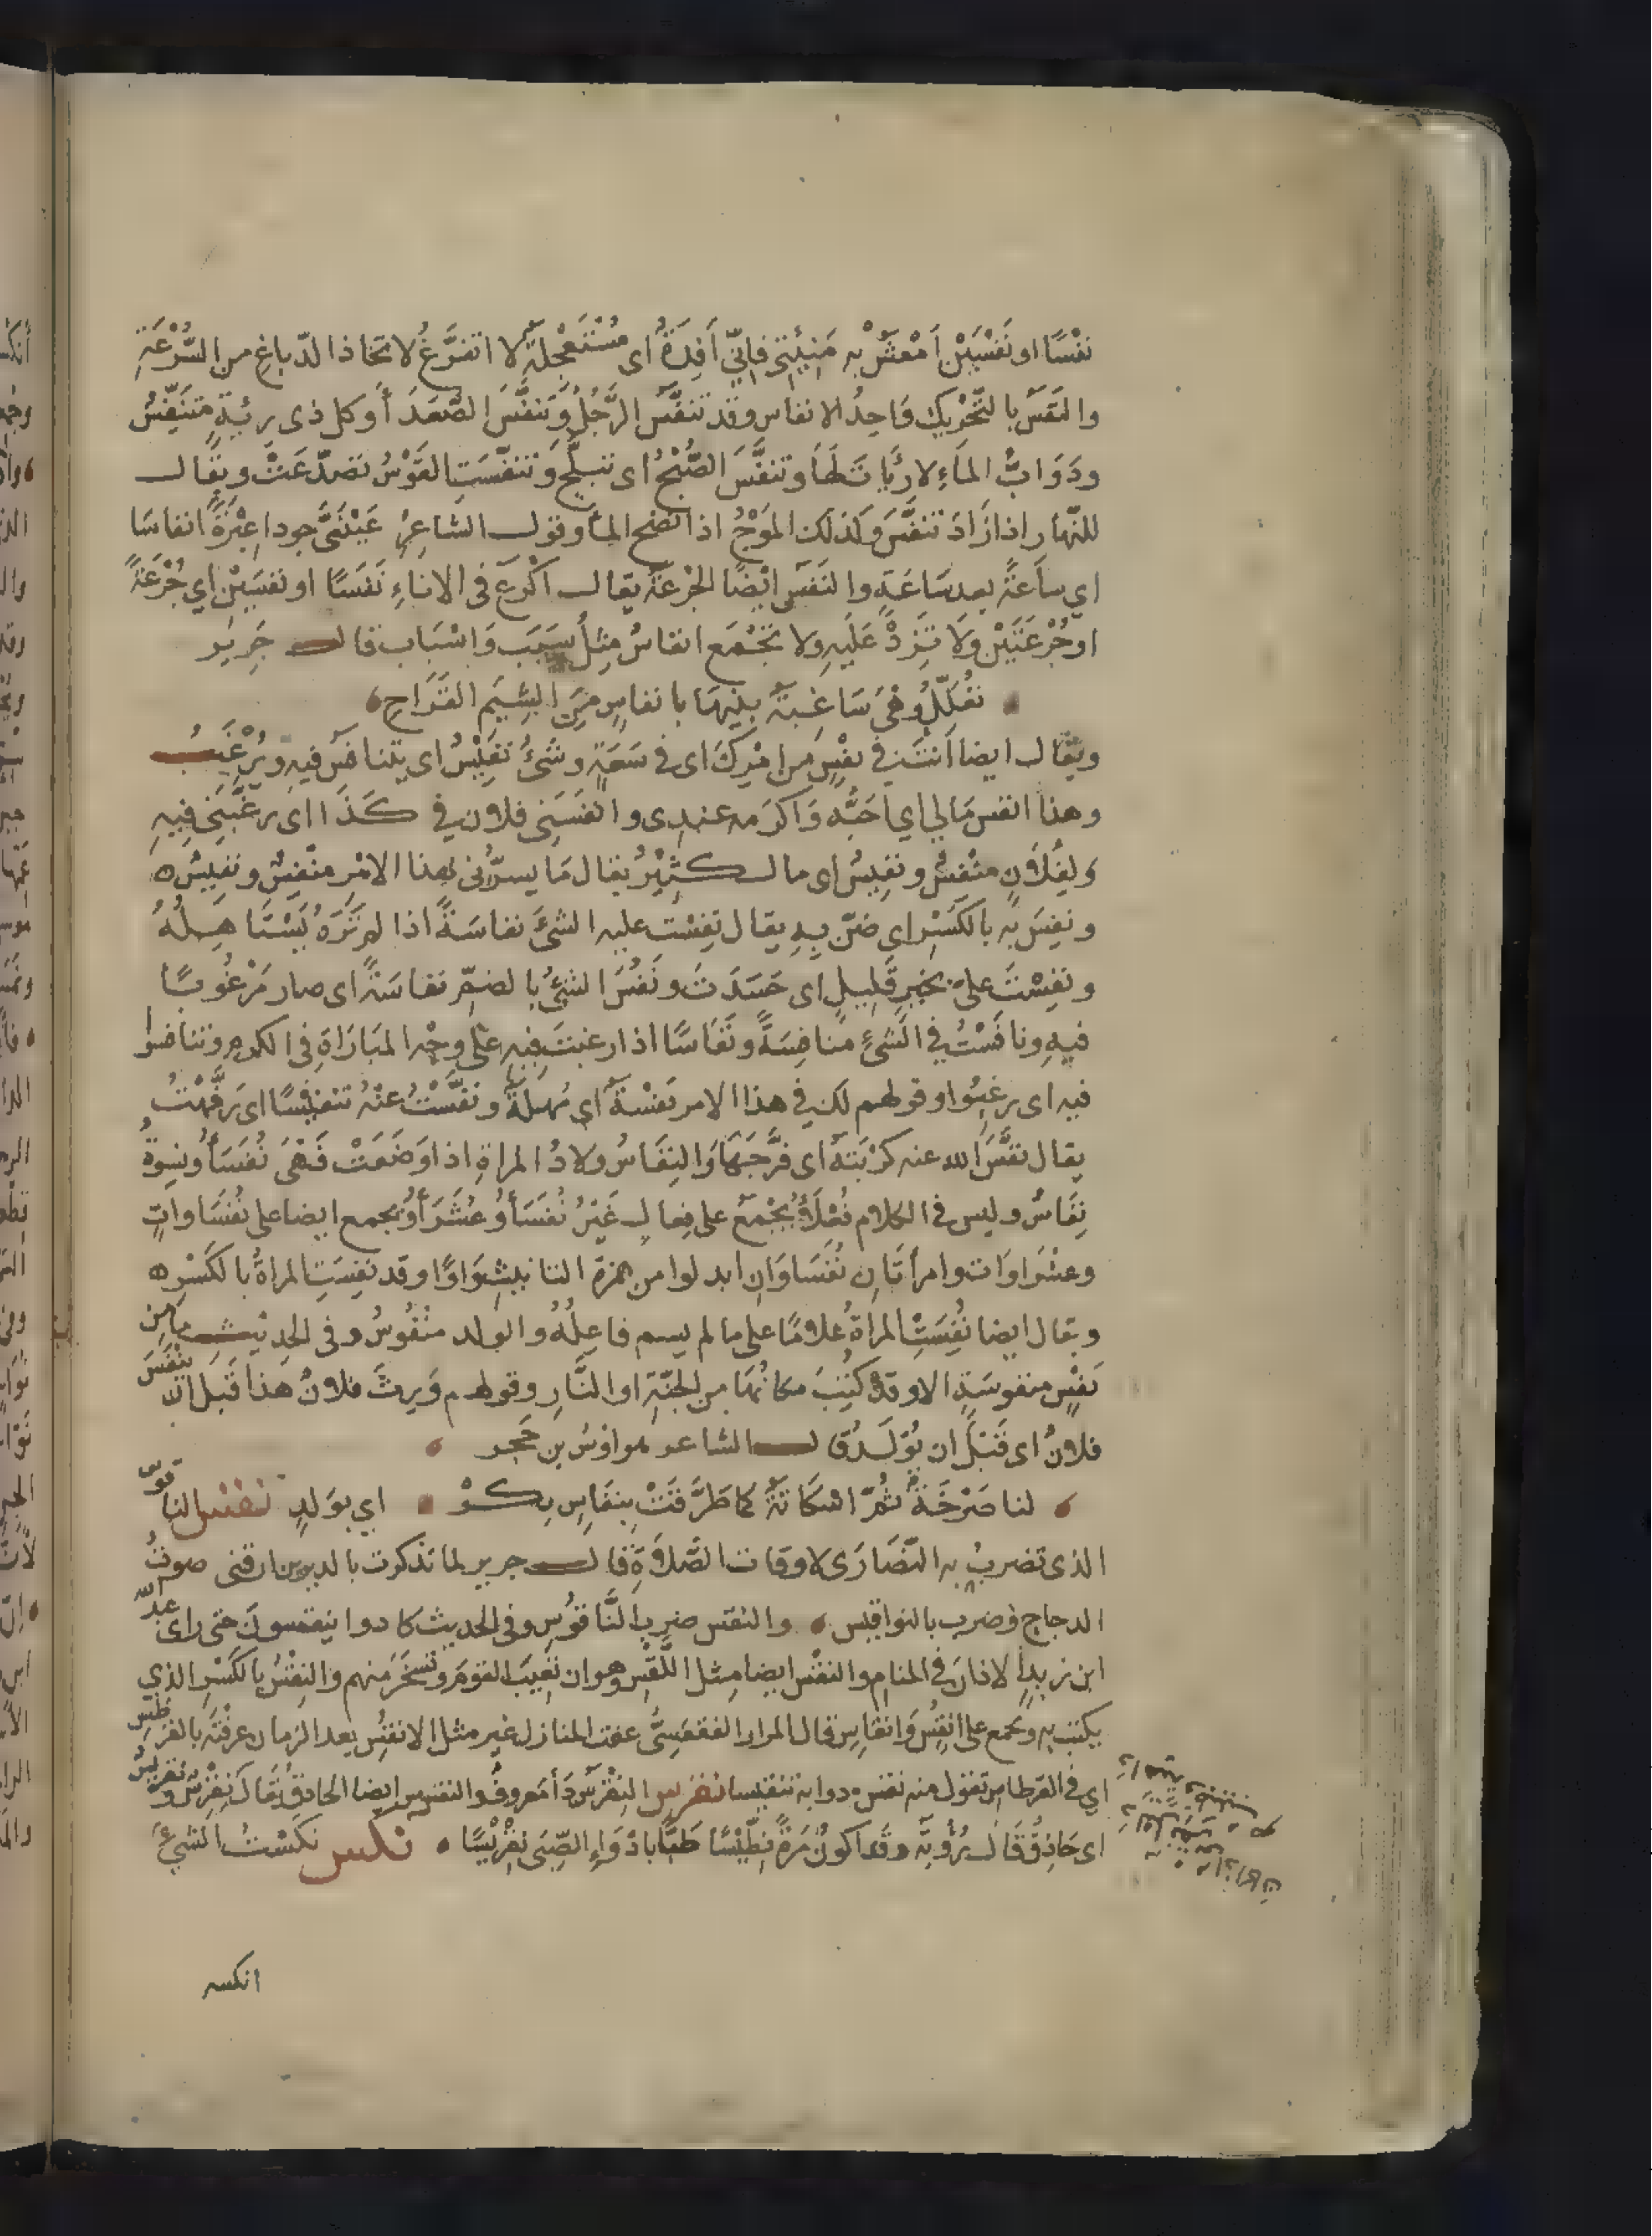 نفْسًا او نَفْسَيْن اَمْعَسُ به مَنِيئتي فاِنّي اَفِدَةٌ اى مُسْتَعْجِلةٌ لا اتفرَّغُ لاتخاذ الدّباغ من السُّرْعَةِ
والنَفَسُ بالتَّحْرِيكِ وَاحِدُ الانفاس وقد تنَفَّسَ الرَّجُلُ وَتنفَّسَ الصُّعَدَ أَ وكل ذى رِئيةٍ متنَفِّسٌ
ودَوَابُّ الماَءِ لا رئَاتَ لَهَا وتنفَّسَ الصُّبْحُ اى تبلَّج وَتنفّسَتِ القَوْسُ تصَدّعَتْ ويقال
للنّهار اذا زَادَ تنفَّسَ وَكذلك المَوْجُ اذا نضح الماَ وقول الشاعِرِ عَيْنَىَّ جودا عِبْرَةً انفاسَا
اي ساَعَةً بعد سَاعَةٍ والنَفَس ايْضًا الجُرْعَةُ يقال اكْرَع فى الاناءِ نَفَسًا او نفسَيْنِ اي جُرْعَةً
او جُرْعَتَيْن وَلَا تَزِدْ عَلَيهِ ولا يجْمَع انفاسٌ مِثلُ سَبَبَ وَاسْبَاب قال جَرِير
تُعَلِّلُ وهْىَ سَاغِبَةٌ بنِيهَا بانفاسٍ مِنَ الشِّيَمِ القَرَاحِ
ويقال ايضا اَنتَ في نفَسٍ مِن امْرِكَ اى فى سَعَةٍ وشَىْءٌ نَفِيْسٌ اى يتنافَسُ فيهِ ويُرْغَبُ
وهذا انفس مَالي اي احَبُّه وَاكرَمه عندى وانفَسَنِى فلان في كَذَا اى رغَّبَنِى فِيهِ
وَلِفُلَانٍ منْفِسٌ ونفِيسٌ اى مال كثِيْرٌ يقال مَا يسرّنى بهذا الامْرِ منْفِسٌ ونفِيسٌ
ونفِسَ به بالكَسْرِ اي ضَنّ بِهِ يقال نفِسْت عليه الشئَ نفاسَةً اذا لم تَرَهُ يَسْتَاهِلُهُ
ونفِسْتَ علىَّ بخيْرٍ قَلِيلٍ اى حَسَدتَ ونَفُسَ الشئُ بالضمِّ نفاسَةً اى صار مَرْغُوبًا
فيهِ ونافَسْتُ في الشئِ منافِسَةً ونَفَاسًا اذا رغبتَ فِيهِ على وجْهِ المبَارَاةِ فِى الكرم وتنافسُوا
فيه اى رغِبُوا وقولهم لكَ في هذا الامر نفْسَةٌ اى مُهلةٌ ونفّسْتُ عنْهُ تنفيْسًا اى رَفّهْتُ
يقال نفَّسَ الله عنه كرْبَتهُ اى فرَّجَهَا وَالنِفَاسُ ولادُ المراة اذا وَضَعَتْ فَهْىَ نُفَسَأُ ونِسْوةٌ
نِفَاسٌ وليس فى الكلام فُعَلَأُ يُجْمَعُ على فِعال غَيْرُ نُفَسَأُ وعُشَرَأُ ويجمع ايضا على نُفَسَاوَاتٍ
وعشَرَاوَات وامرأتَانِ نُفَسَاوَانِ ابدلوا من همزة التانيث وَاوًا وقد نفِسَتِ المراةُ بالكسْرِ
ويقال ايضا نُفِسَتْ المراةُ غلامًا على ما لم يسم فاعِلُهُ والولد منْفُوسٌ وفى الحديث مامن
نَفْسٍ منفوسَةٍ الا وقدْ كُتِبَ مكانُهَا من الجنّةِ او النَّارِ وقولهم وَرِثَ فلانٌ هذا قَبلَ ان ينْفَسَ
فلانٌ اى قَبْلَ ان يُوْلَدَ قال الشاعر هو اوْسُ بن حَجر
لنا صَرْخَةٌ ثُمّ اسْكَاتَةٌ كما طَرَّقَتْ بِنِفَاسٍ بِكرْ اي بوَلدٍ نقس الناقوس
الذى تضربُ به النّصَارَى لاوقات الصّلَاةِ قال جرير لما تذكرت بالديرين ارقنى صوتُ
الدجاج وضرب بالنواقيس والنقس ضرب النَّاقُوسِ وفى الحديث كادوا ينقسونَ حتى راى عبد الله
ابن زيدٍ الاذانَ فى المنام والنقْس ايضا مِثل اللَّقْسِ وهو ان تَعِيبَ القومَ وتسْخَرَ منهم والنِقْسُ بالكَسْرِ الذي
يكتب به ويجمع على انقُسٍ وَانقَاسٍ قال المرار الفقعَسِىُّ عفت المنازل غير مثل الانقُسِ بعد الزمان عرفْتَه بالقرطس
اي فى القرطاس تقول منه نقس دواته تنقيسا نقرس النِقْرِسُ دَأ مَعروف والنقرس ايضا الحاذق يُقَالَ نِقْرِسٌ ونقريس
اى حَاذِقٌ قَالَ رُؤبة وقد اكونُ مَرَّةً نِطِّيْسًا طَبًّا بادْوَاءِ الصِّبَى نِقْرِيْسًا نكس نكَسْتُ الشئَ
انكسه